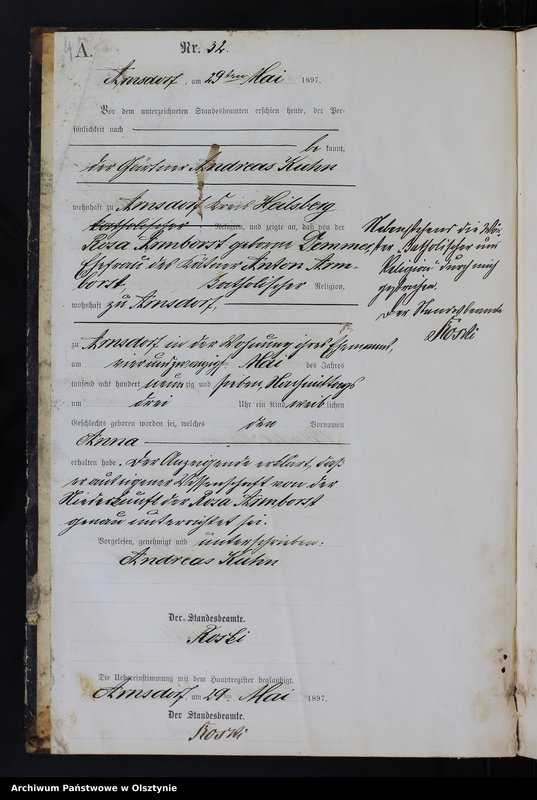 A.
Nr. 32.
Arnsdorf, am 29ten Mai 1897.
Vor dem unterzeichneten Standesbeamten erschien heute, der Per-
sönlichkeit nach
be kannt,
der Gärtner Andreas Kuhn
wohnhaft zu Arnsdorf Kreis Heilsberg
katholischer Religion, und zeigte an, daß von der
Rosa Armborst geborene Demmer,
Ehefrau des Kätner Anton Arm-
borst, katholischer Religion,
wohnhaft zu Arnsdorf,
zu Arnsdorf in der Wohnung ihres Ehemannes,
am vierundzwanzigsten Mai des Jahres
tausend acht hundert neunzig und sieben, Nachmittags
um drei Uhr ein Kind weiblichen
Geschlechts geboren worden sei, welches den Vornamen
Anna
erhalten habe. Der Anzeigende erklärt, daß
er aus eigener Wissenschaft von der
Niederkunft der Rosa Armborst
genau unterrichtet sei.
Vorgelesen, genehmigt und unterschrieben:
Andreas Kuhn
Der Standesbeamte.
Roski
Die Uebereinstimmung mit dem Hauptregister beglaubigt.
Arnsdorf, am 29ten Mai 1897.
Der Standesbeamte.
Roski
Nebenstehend die Wör-
ter "katholischer und
Religion" durch mich
gestrichen.
Der Standesbeamte
Roski
Archiwum Państwowe w Olsztynie